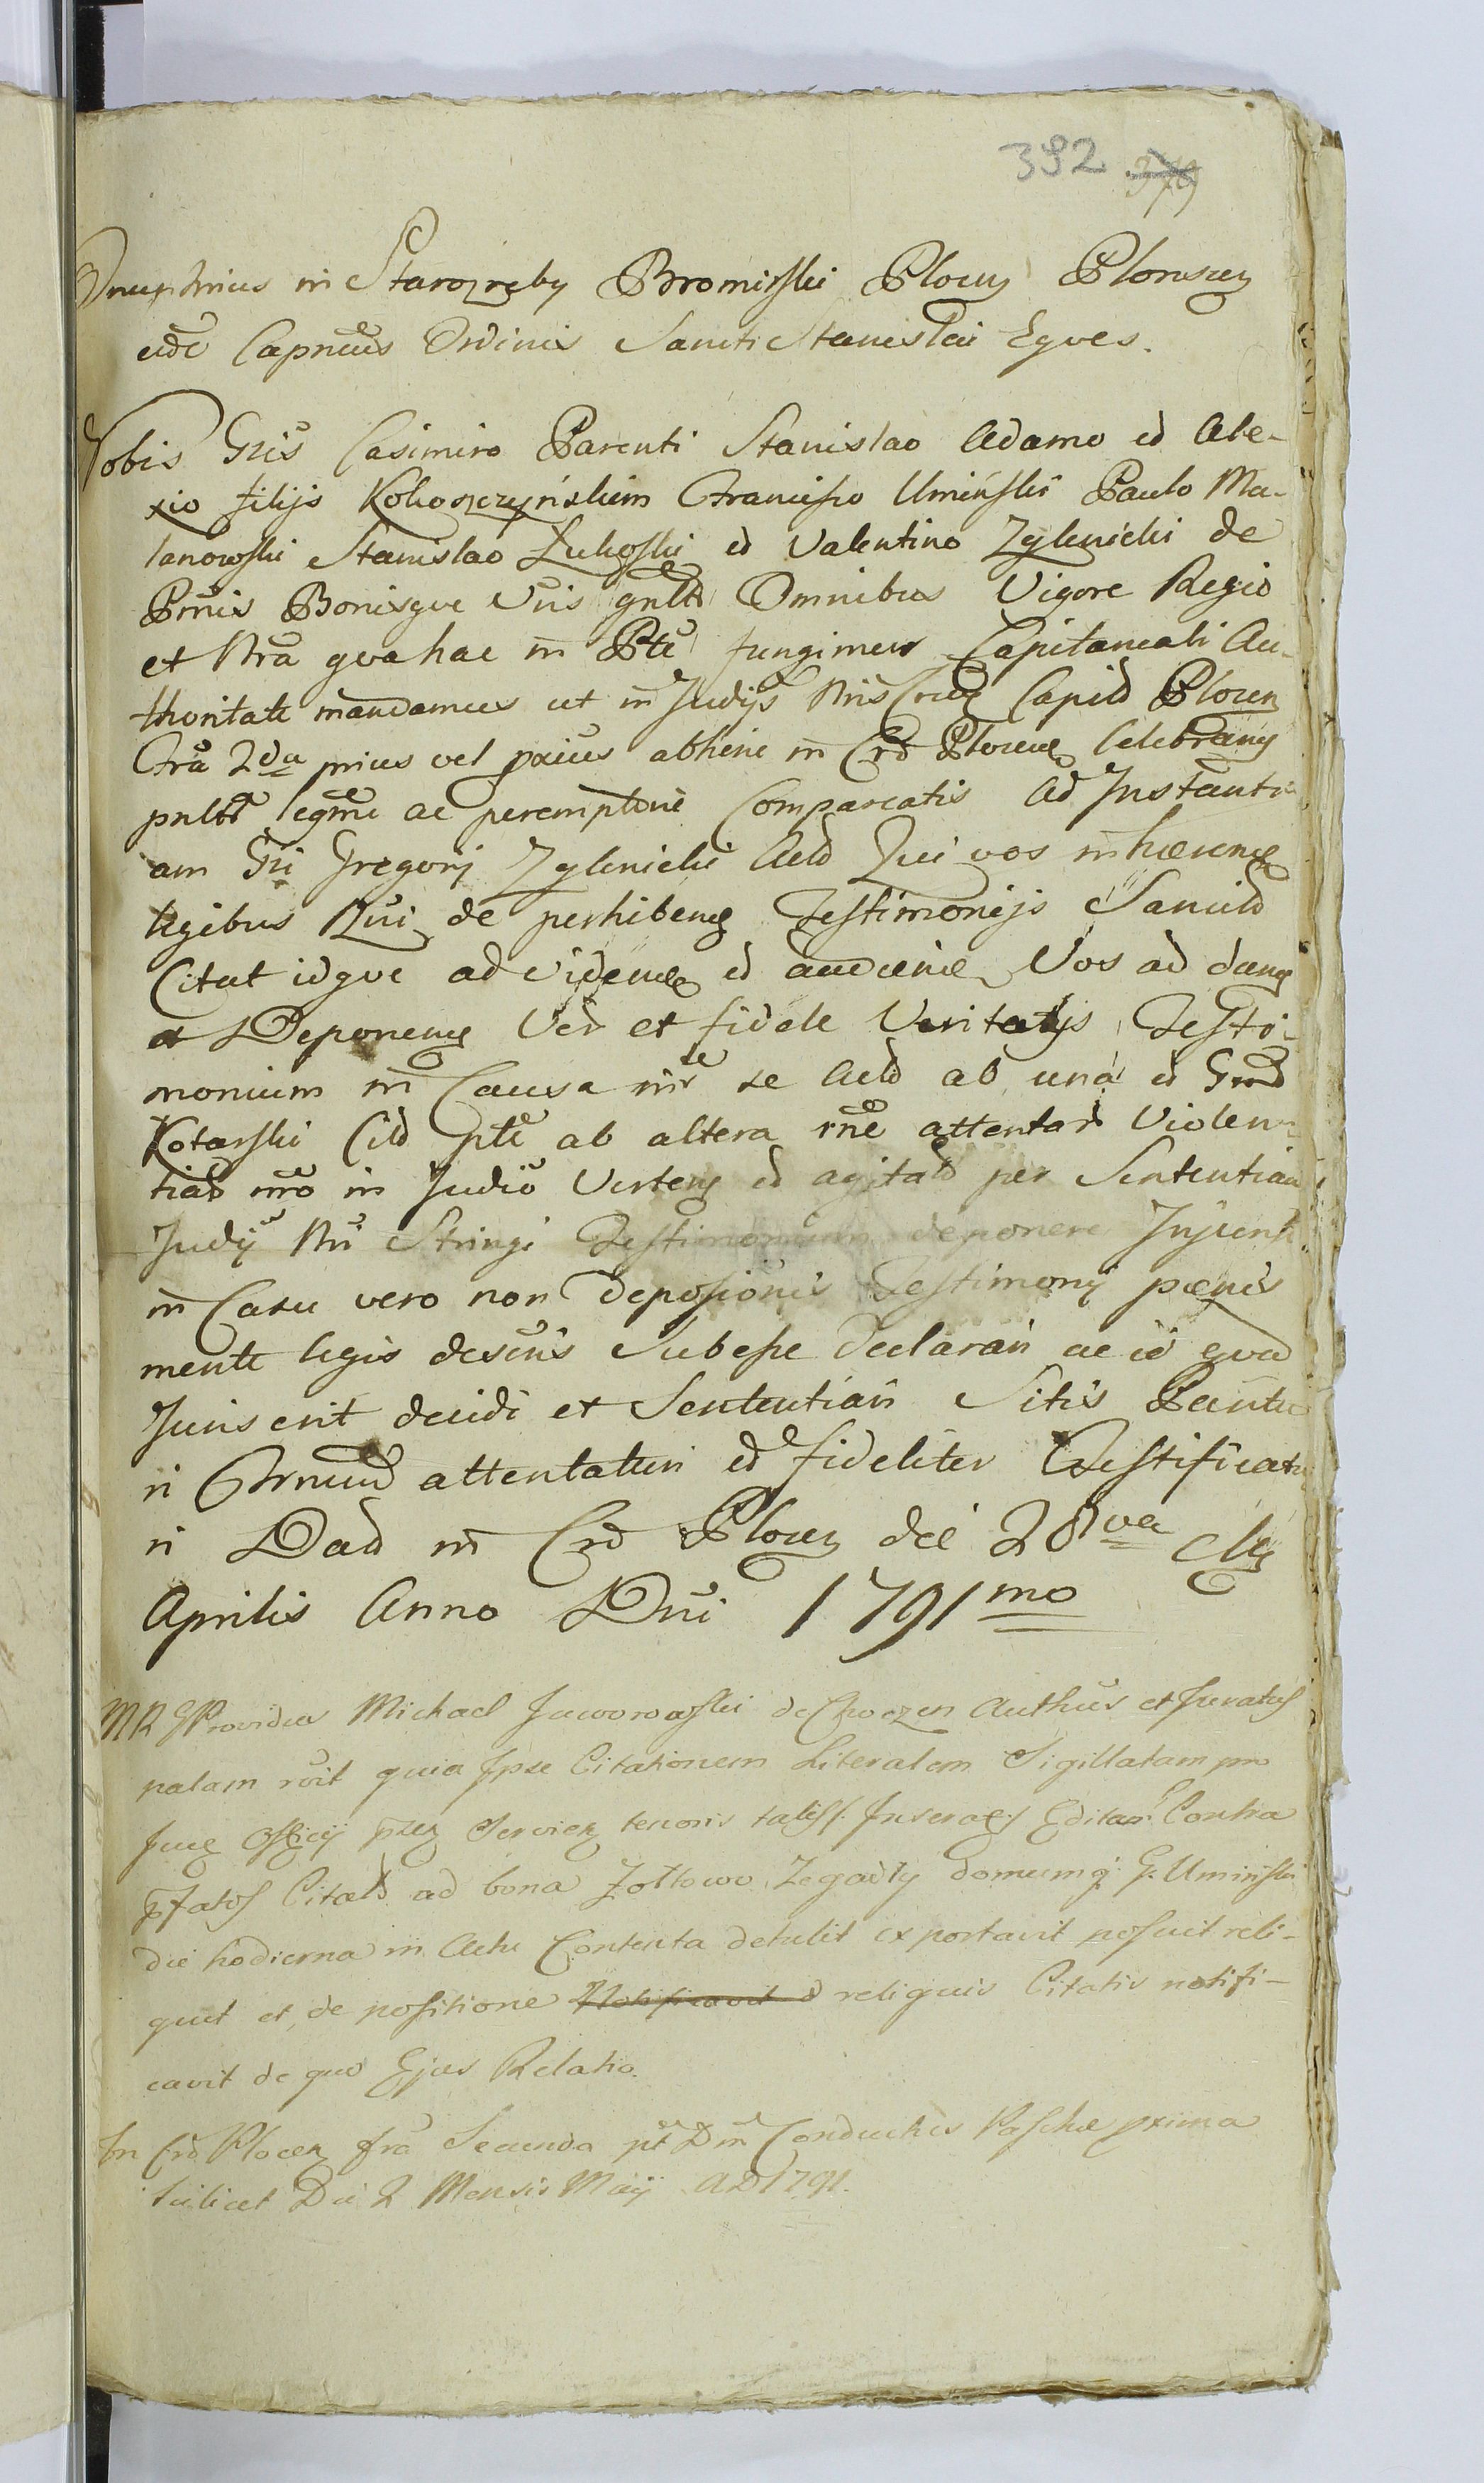 392 379
Onuphrius in Starozreby Bromirski Plocen Plonscen
eidc Capneus Ordinis Sancti Stanislai Eques.
Vobis Gsis Casimiro Parenti Stanislao Adamo ed Ale-
xio filijs Kokoszczyńskim Francisco Umiński Paulo Ma-
lanowski Stanislao Lukoski ed Valentino Zglenicki de
Prnis Bonisque Vris gnltr Omnibus Vigore Regio
et Nra qua hac in Pte fungimur Capitaneali Au-
thoritate mandamus ut in Judijs Nris Cren Capid Plocen
Fra 2da prius vel paius abhinc in Crd Plocen Celebran
pnltr legme ac peremptorie Compareatis Ad Instanti
am Gsi Gregorij Zglenicki Actd Qui vos inhæren
legibus Rni de perhiben Testimonijs Sancitd
Citat idque ad viden ed audien Vos ad dan
et Deponen Ver et fidele Veritatis Testi-
monium in Causa intr se Actd ab una ed Gsd
Kotarski Citd pte ab altera rne attentard Violen-
tiard nro in Judio Verten ed agitatd per Sententiam
Judij Nri Stringi Testimonium deponere Injuncti
in Casu vero non deposionis Testimonij pænis
mente legis descris Subesse declarari ac id quod
Juris erit decidi et Sententiari Sitis Parituri
ri Ternnud attentaturi ed fideliter Testificatu
ri Dad in Crd Plocen die 28va Ms
Aprilis Anno Dni 1791mo
MR Providus Michael Jaworowski de Choczen Authus et Juratus
palam roit quia Ipse Citationem Literalem Sigillatam pro
Officij Servien tenoris talis Inseraes Editam Contra
pfatos Citatd ad bona Zołtowo Zegadły domumq G. Uminski
die hodierna in Actu Contenta detulit exportavit posuit reli-
quit et de positione Notificavit d reliquis Citatis notifi-
cavit de quo Ejus Relatio.
In Crd Plocen fra Secunda pt Dm Conductus Paschæ prima
scilicet Die 2 Mensis Maij AD 1791.